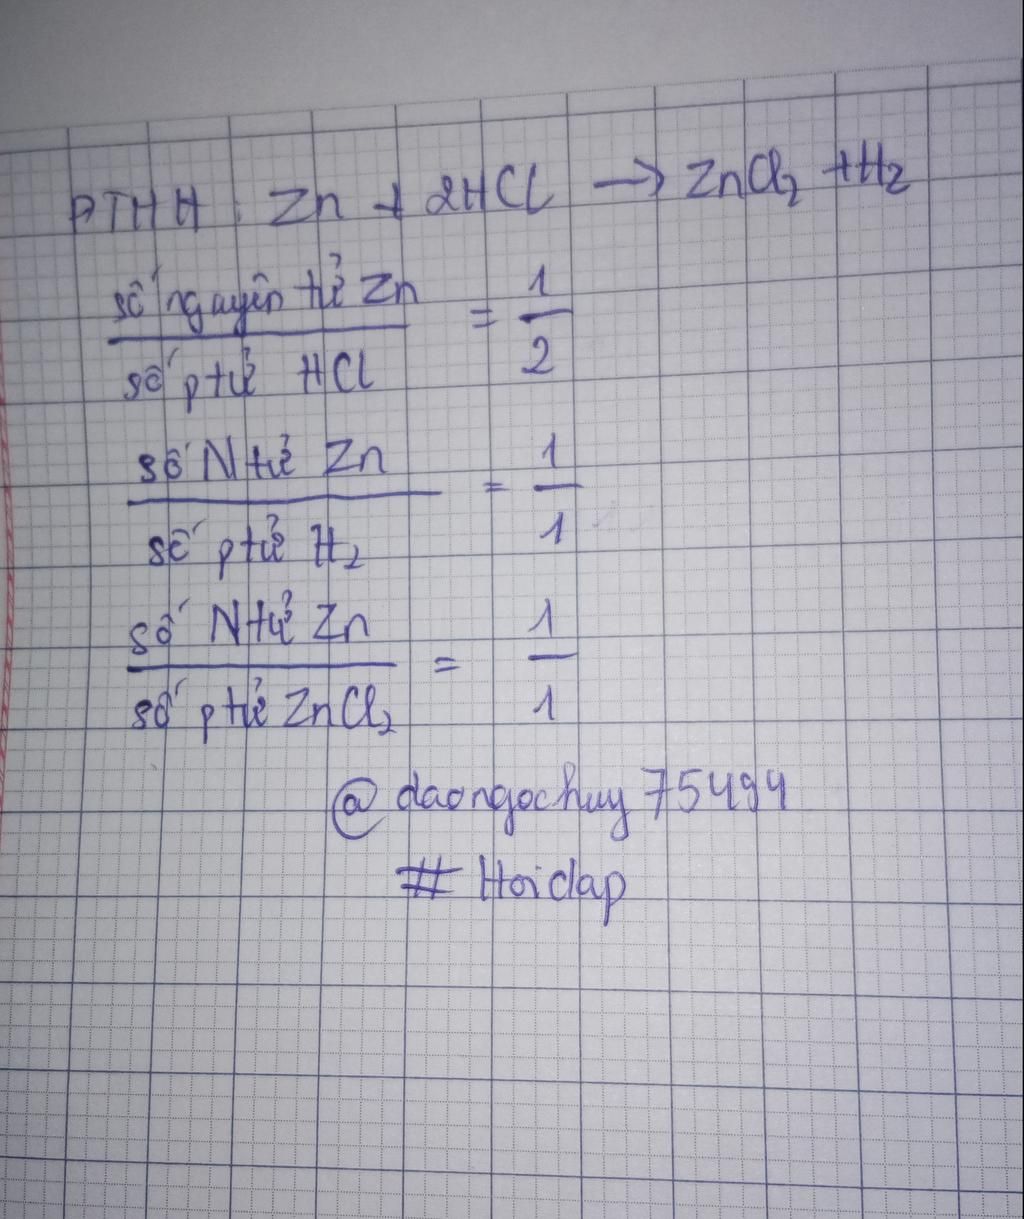 PTHH: Zn + 2HCl → ZnCl₂ + H₂
số nguyên tử Zn / số ptử HCl = 1/2
số Ntử Zn / số ptử H₂ = 1/1
số Ntử Zn / số ptử ZnCl₂ = 1/1
@daongochuy75494
# Hoidap